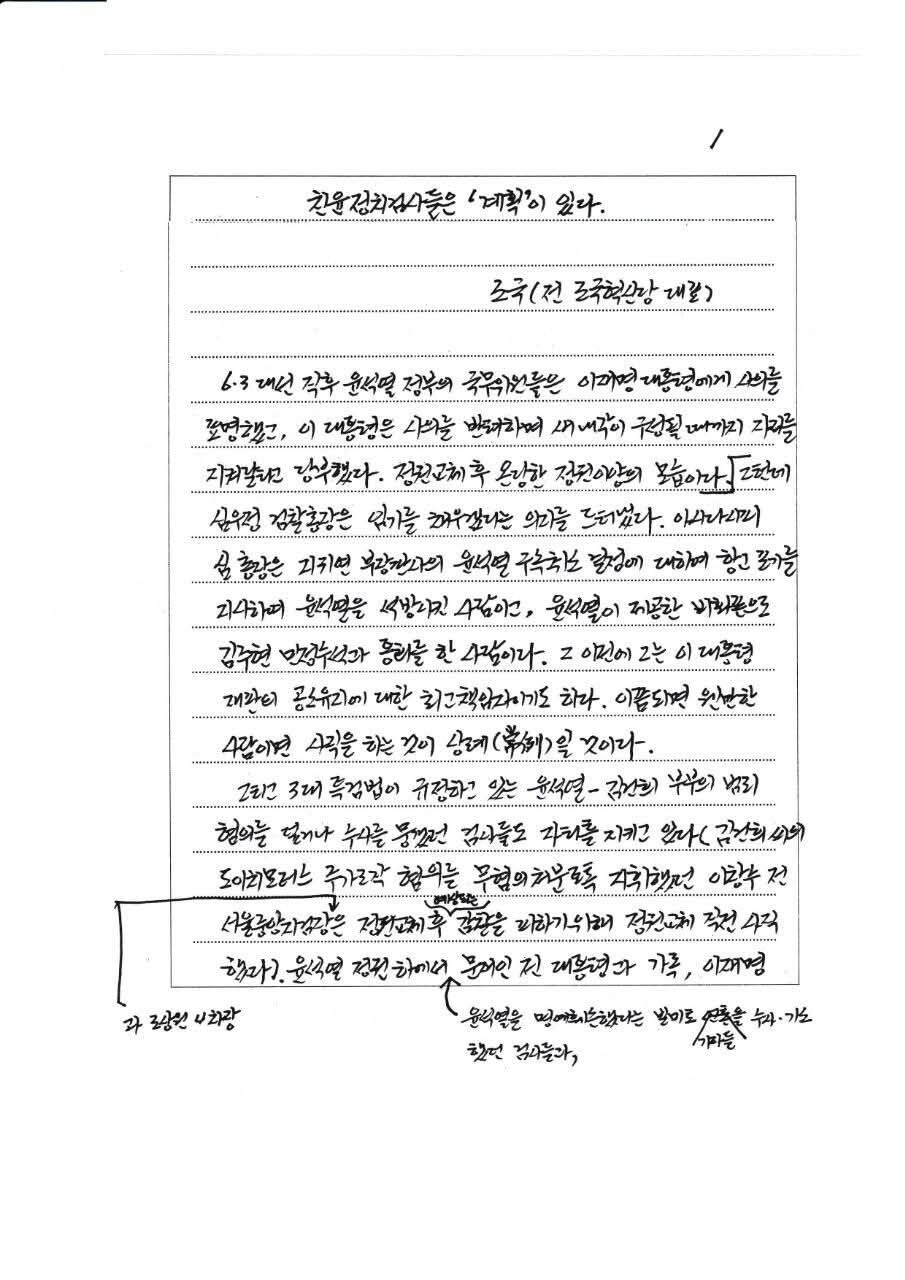 1
친윤정치검사들은 '계획'이 있다.
조국(전 조국혁신당 대표)
6·3 대선 직후 윤석열 정부의 국무위원들은 이재명대통령에게 사의를
표명했고, 이 대통령은 사의를 반려하며 새 내각이 구성될 때까지 자리를
지켜달라고 당부했다. 정권교체 후 온당한 정권이양의 모습이다. 그런데
심우정 검찰총장은 임기를 채우겠다는 의지를 드러냈다. 아시다시피
심 총장은 지귀연 부장판사의 윤석열 구속취소 결정에 대하여 항고 포기를
지시하여 윤석열을 석방시킨 사람이고, 윤석열이 제공한 비화폰으로
김주현 민정수석과 통화를 한 사람이다. 그 이전에 그는 이 대통령
재판의 공소유지에 대한 최고책임자이기도 하다. 이쯤되면 웬만한
사람이면 사직을 하는 것이 상례(常例)일 것이다.
그리고 3대 특검법이 규정하고 있는 윤석열-김건희 부부의 범죄
혐의를 덮거나 수사를 뭉갰던 검사들도 자리를 지키고 있다(김건희 씨의
도이치모터스 주가조작 혐의를 무혐의처분토록 지휘했던 이창수 전
예상되는
서울중앙지검장은 정권교체 후 감찰을 피하기위해 정권교체 직전 사직
했다). 윤석열 정권 하에서 문재인 전 대통령과 가족, 이재명
과 조상원 4차장
윤석열을 명예훼손했다는 빌미로 언론을 수사·기소
기자들
했던 검사들과,